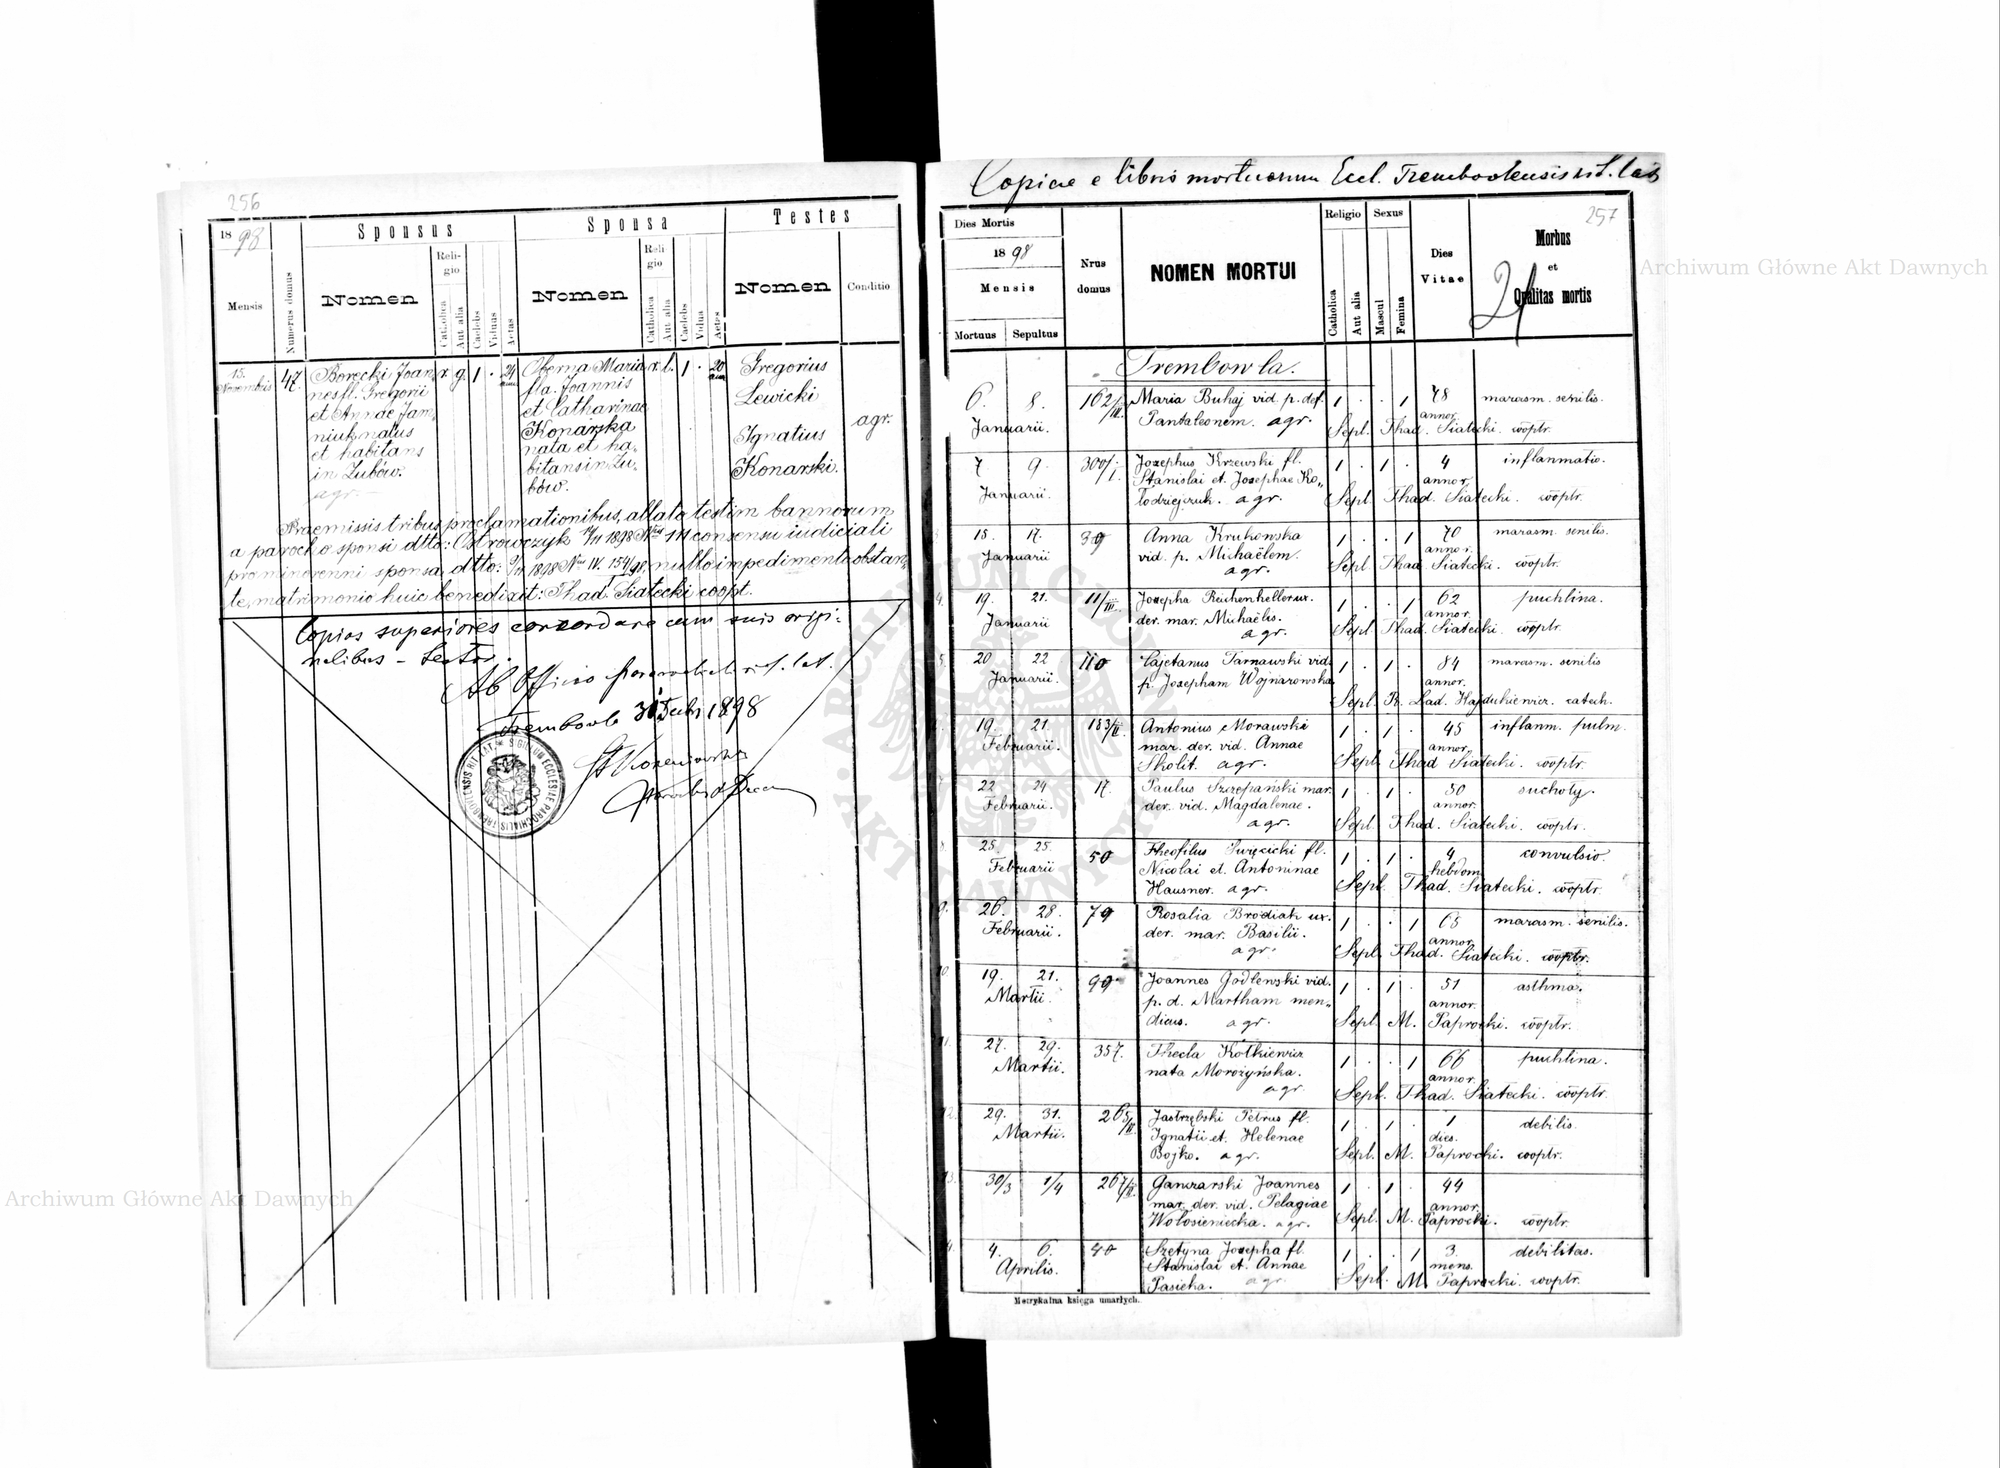 256
18 98
Mensis
Numerus domus
Sponsus
Nomen
Religio
Catholica
Aut alia
Caelebs
Viduus
Aetas
Sponsa
Nomen
Religio
Catholica
Aut alia
Caelebs
Vidua
Aetas
Testes
Nomen
Conditio
15. Novembris
47.
Borecki Joan
nes fl. Gregorii
et Annae Jam
niuk natus
et habitans
in Zubów.
agr.
r. g. 1 . 24 ann.
Oberna Maria
fla. Joannis
et Catharinae
Konarska
nata et ha
bitans in Zu
bów.
r. l. 1 . 20 ann
Gregorius
Lewicki
Ignatius
Konarski.
agr.
Praemissis tribus proclamationibus, allato testim bannorum
a parocho sponsi dtto: Ostrowczyk 14/11 1898 Nro 111 consensu iudiciali
pro minorenni sponsa dtto: 1898 Nro IV. 154/98 nullo impedimento obstan
te, matrimonio huic benedixit: Thad. Siatecki coopt.
Copias superiores concordare cum suis origi:
nalibus – testor.
Ab Officio parochiali rit. lat.
Trembowla 30 Decbr 1898
SIGILLUM ECCLESIAE PAROCHIALIS
Copiae e libris mortuorum Eccl. Trembowlensis rit. lat
257
Dies Mortis
18 98
Mensis
Mortuus Sepultus
Nrus domus
NOMEN MORTUI
Religio
Catholica
Aut alia
Sexus
Mascul
Femina
Dies Vitae
Morbus
et
Qualitas mortis
Trembowla.
6. 8. Januarii. 162/III. Maria Buhaj vid. p. def. 1 . . 1 78 annor. marasm. senilis.
Pantaleonem. agr. Sepl. Thad. Siatecki. cooptr.
7 9. Januarii. 300/I. Josephus Krzewski fl. 1 . 1 . 4 annor. inflanmatio.
Stanislai et Josephae Ko„
lodziejczuk. agr. Sepl. Thad. Siatecki. cooptr.
15. 17. Januarii 39 Anna Krukowska 1 . . 1 70 annor. marasm. senilis.
vid. p. Michaëlem.
agr. Sepl. Thad. Siatecki. cooptr.
4. 19. 21. Januarii 11/III. Josepha Reichenheller ux. 1 . . 1 62 annor. puchlina.
der. mar. Michaëlis.
agr. Sepl. Thad. Siatecki. cooptr.
5. 20 22 Januarii. 110 Cajetanus Tarnawski vid. 1 . 1 . 84 annor. marasm. senilis
p. Josepham Wojnarowska
Sepl. R. Lad. Hajdukiewicz. catech.
19. 21. Februarii. 183/II Antonius Morawski 1 . 1 . 45 annor. inflanm. pulm.
mar. der. vid. Annae
Skolit. agr. Sepl. Thad Siatecki. cooptr.
7. 22 24 Februarii. 17. Paulus Szczepański mar. 1 . 1 . 50 annor. suchoty.
der. vid. Magdalenae.
agr. Sepl. Thad. Siatecki. cooptr.
8. 25. 25. Februarii 50 Theofilus Święcicki fl. 1 . 1 . 4 hebdom. convulsio.
Nicolai et Antoninae
Hausner. agr. Sepl. Thad. Siatecki. cooptr.
9. 26. 28. Februarii. 79 Rosalia Brodiak ux. 1 . . 1 68 annor. marasm. senilis.
der. mar. Basilii.
agr. Sepl. Thad. Siatecki. cooptr.
10. 19. 21. Martii. 99 Joannes Godlewski vid. 1 . 1 . 51 annor. asthma.
p. d. Martham men„
dicus. agr. Sepl. M. Paprocki. cooptr.
11. 27. 29. Martii. 357. Thecla Kotkiewicz 1 . . 1 66 annor. puchlina.
nata Morożyńska.
agr. Sepl. Thad. Siatecki. cooptr.
12. 29. 31. Martii. 265/II. Jastrzębski Petrus fl. 1 . 1 . 1 dies. debilis.
Ignatii et Helenae
Bojko. agr. Sepl. M. Paprocki. cooptr.
13. 30/3 1/4 267/II. Ganczarski Joannes 1 . 1 . 44 annor.
mar. der. vid. Pelagiae
Wołosieniecka. agr. Sepl. M. Paprocki. cooptr.
4. 6. Aprilis. 40 Szetyna Josepha fl. 1 . . 1 3. mens. debilitas.
Stanislai et Annae
Pasieka. agr. Sepl. M. Paprocki. cooptr.
Metrykalna księga umarłych.
Archiwum Główne Akt Dawnych
Archiwum Główne Akt Dawnych
ARCHIWUM GŁÓWNE AKT DAWNYCH